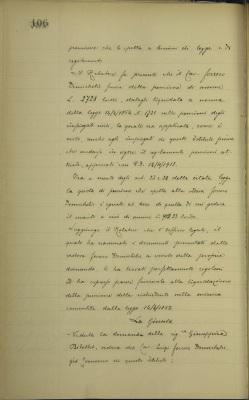 106
pensione che le spetta a termini di legge e di
regolamento
Il Relatore fa presente che il Cav. Ferrero
Domenicali fruiva della pensione di annue
L. 2728 lorde, statagli liquidata a norma
della legge 14/4/1864 N. 1731 sulle pensioni degli
impiegati civili, la quale era applicata, come è
noto, anche agli impiegati di questo Istituto prima
che andasse in vigore il regolamento pensioni at-
tuale, approvato con R.D.
Ora a mente degli art. 22 e 28 della citata legge
la quota di pensione che spetta alla Vedova Ferrero
Domenicali è eguale al terzo di quella di cui godeva
il marito e cioè di annue L. 909.33 lorde.
Soggiunge il Relatore che l'Ufficio legale, il
quale ha esaminato i documenti presentati dalla
vedova Ferrero Domenicali a corredo della propria
domanda, li ha trovati perfettamente regolari
Ed ha espresso parere favorevole alla liquidazione
della pensione della richiedente nella misura
consentita dalla legge 14/4/1864
La Giunta
Veduta la domanda della sig.ra Giuseppina
vedova del Cav. Luigi Ferrero Domenicali,
già in questo Istituto;